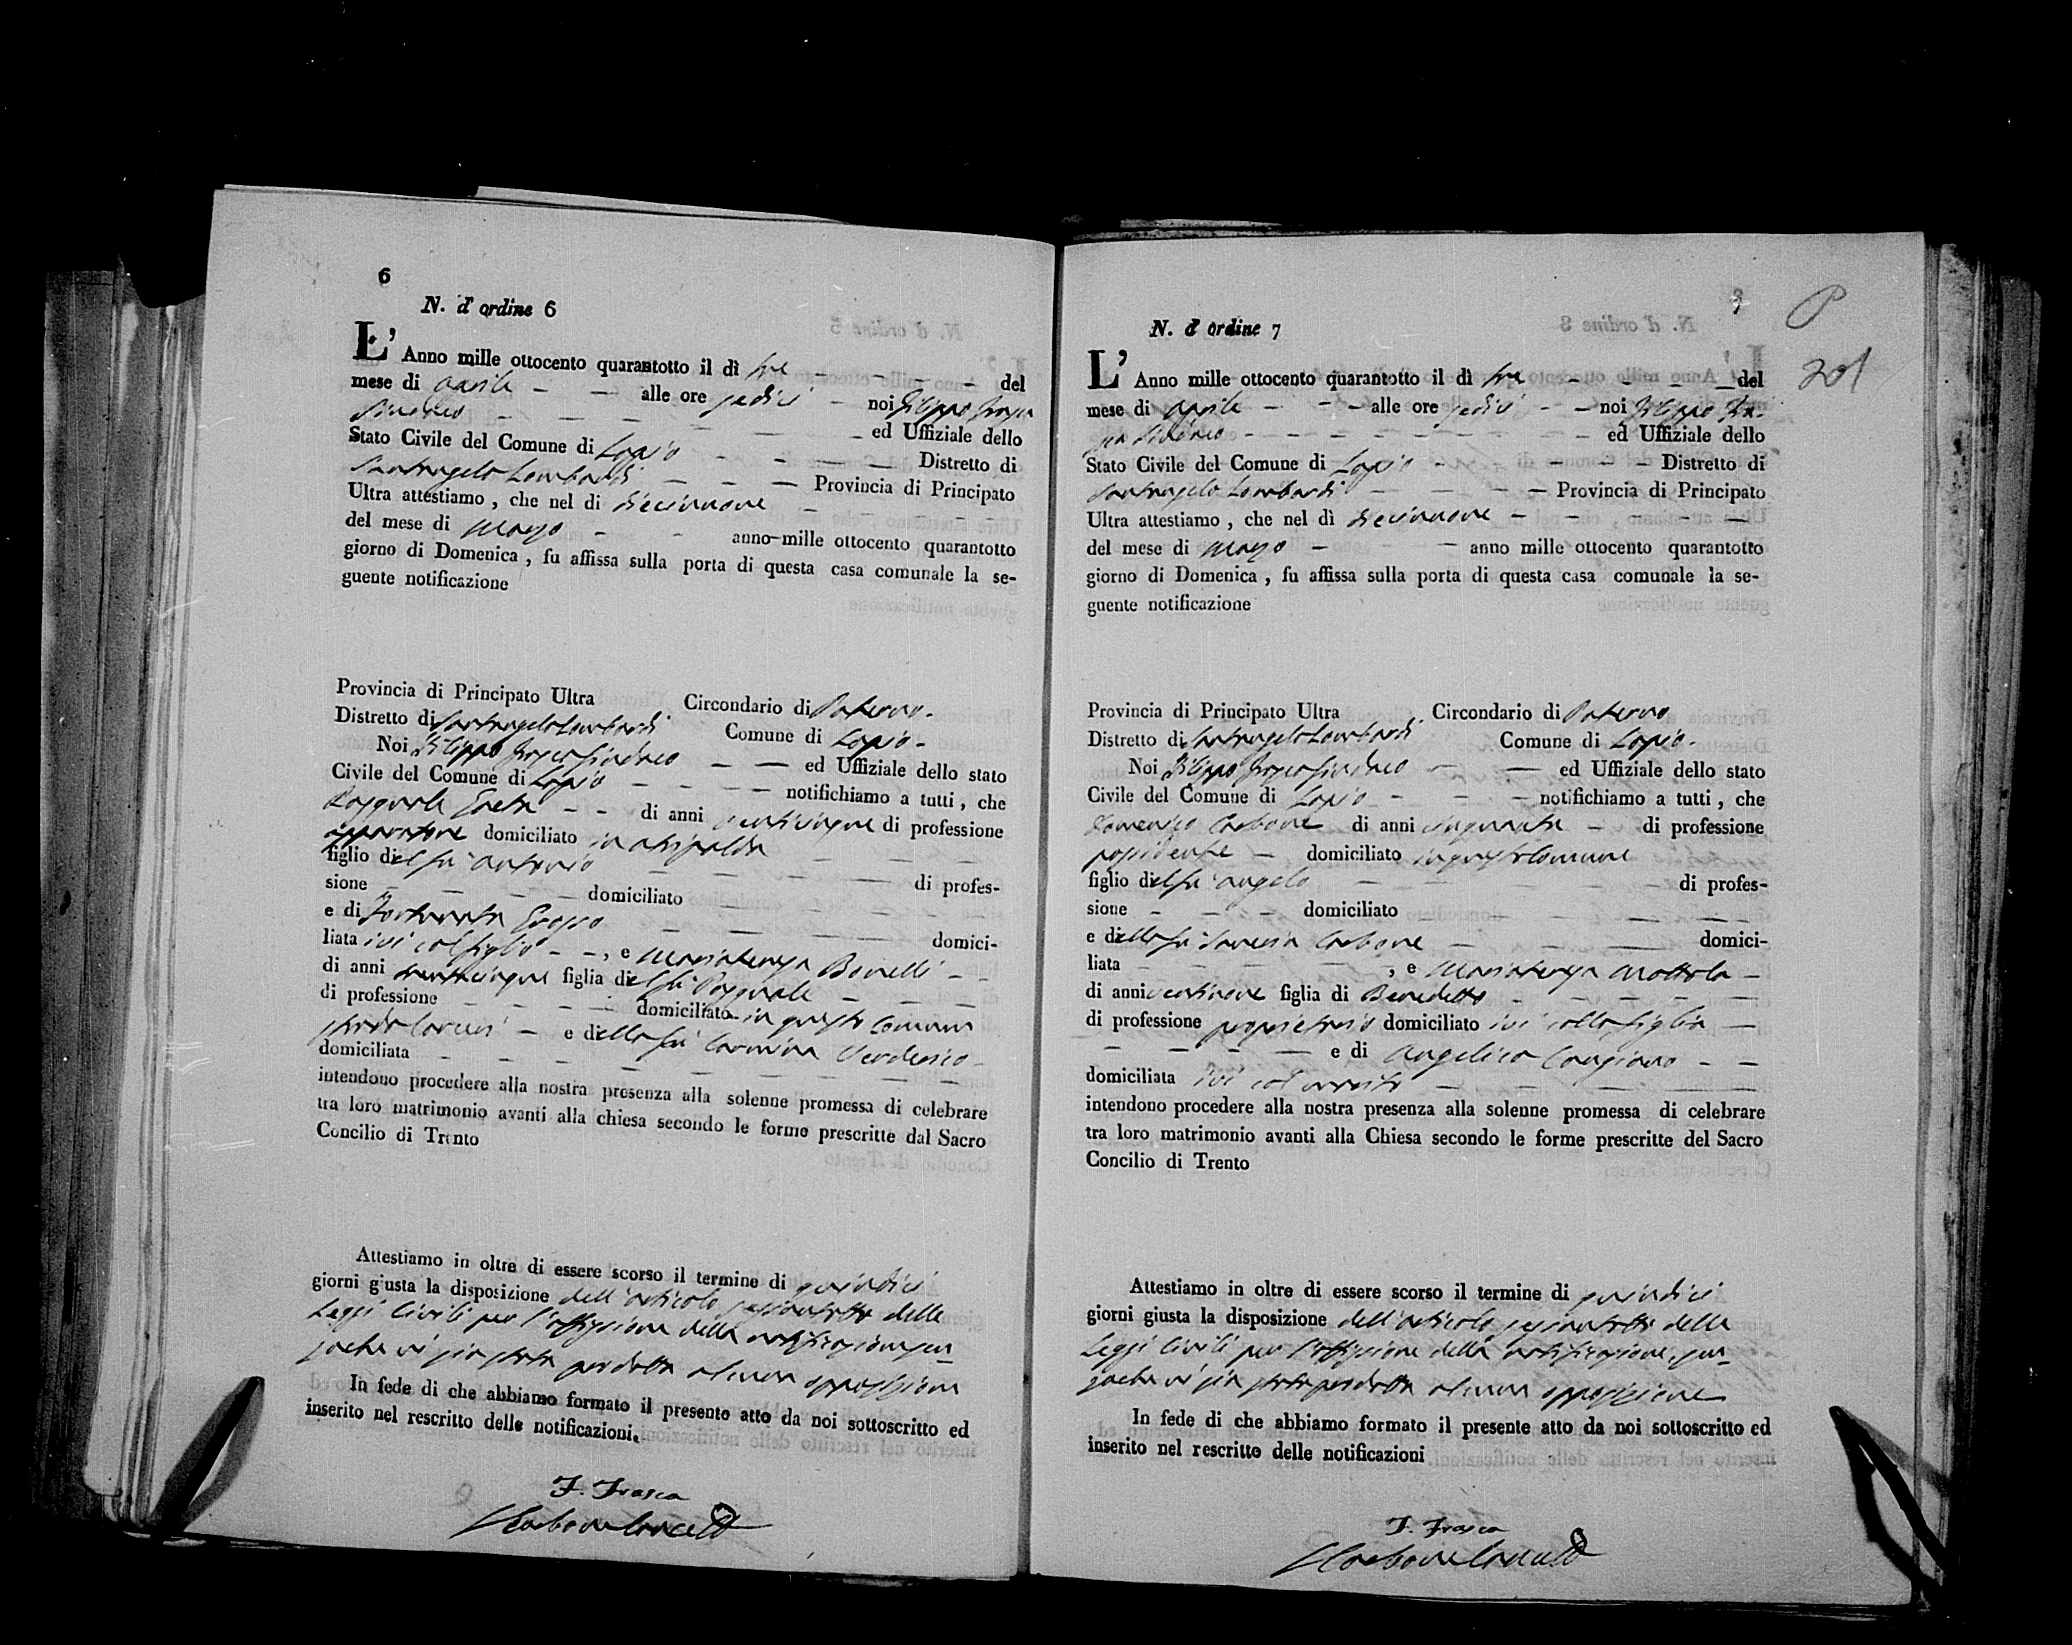 6
N. d'ordine 6
L'Anno mille ottocento quarantotto il dì tre del
mese di Aprile alle ore sedici noi Filippo Frasca
Sindaco ed Uffiziale dello
Stato Civile del Comune di Lapio Distretto di
Santangelo Lombardi Provincia di Principato
Ultra attestiamo, che nel di diecinnove
del mese di Marzo anno mille ottocento quarantotto
giorno di Domenica, fu affissa sulla porta di questa casa comunale la se-
guente notificazione
Provincia di Principato Ultra Circondario di Paterno.
Distretto di Santangelo Lombardi Comune di Lapio.
Noi Filippo Frasca Sindaco ed Uffiziale dello stato
Civile del Comune di Lapio notifichiamo a tutti, che
Pasquale Gaeta di anni venticinque di professione
domiciliato in Atripalda
figlio del fu Antonio di profes-
sione domiciliato
e di Fortunata domici-
liata ivi col figlio, e Mariateresa Bonelli
di anni trentacinque figlia del fu Pasquale
di professione domiciliata in questo Comune
strada e della fu Carmina Verderico
domiciliata
intendono procedere alla nostra presenza alla solenne promessa di celebrare
tra loro matrimonio avanti alla chiesa secondo le forme prescritte dal Sacro
Concilio di Trento
Attestiamo in oltre di essere scorso il termine di quindici
giorni giusta la disposizione dell'articolo sessantotto delle
Leggi Civili per l'affissione della notificazione sen-
zache vi sia stata prodotta alcuna opposizione
In fede di che abbiamo formato il presente atto da noi sottoscritto ed
inserito nel rescritto delle notificazioni.
F. Frasca
Carbone Cancell
N. d'ordine 7
201
L'Anno mille ottocento quarantotto il dì tre del
mese di Aprile alle ore sedici noi Filippo Fra-
sca Sindaco ed Uffiziale dello
Stato Civile del Comune di Lapio Distretto di
Santangelo Lombardi Provincia di Principato
Ultra attestiamo, che nel dì diecinnove
del mese di Marzo anno mille ottocento quarantotto
giorno di Domenica, fu affissa sulla porta di questa casa comunale la se-
guente notificazione
Provincia di Principato Ultra Circondario di Paterno
Distretto di Santangelo Lombardi Comune di Lapio.
Noi Filippo Frasca Sindaco ed Uffiziale dello stato
Civile del Comune di Lapio notifichiamo a tutti, che
Domenico Carbone di anni cinquanta di professione
possidente domiciliato in questo Comune
figlio del fu Angelo di profes-
sione domiciliato
e della fu Carbone domici-
liata, e Mariateresa Mottola
di anni ventinove figlia di Benedetto
di professione proprietario domiciliato ivi colla figlia
e di Angelica Cangiano
domiciliata ivi col marito
intendono procedere alla nostra presenza alla solenne promessa di celebrare
tra loro matrimonio avanti alla Chiesa secondo le forme prescritte del Sacro
Concilio di Trento
Attestiamo in oltre di essere scorso il termine di quindici
giorni giusta la disposizione dell'articolo sessantotto delle
Leggi Civili per l'affissione della notificazione, sen-
zache vi sia stata prodotta alcuna opposizione
In fede di che abbiamo formato il presente atto da noi sottoscritto ed
inserito nel rescritto delle notificazioni
F. Frasca
Carbone Cancell